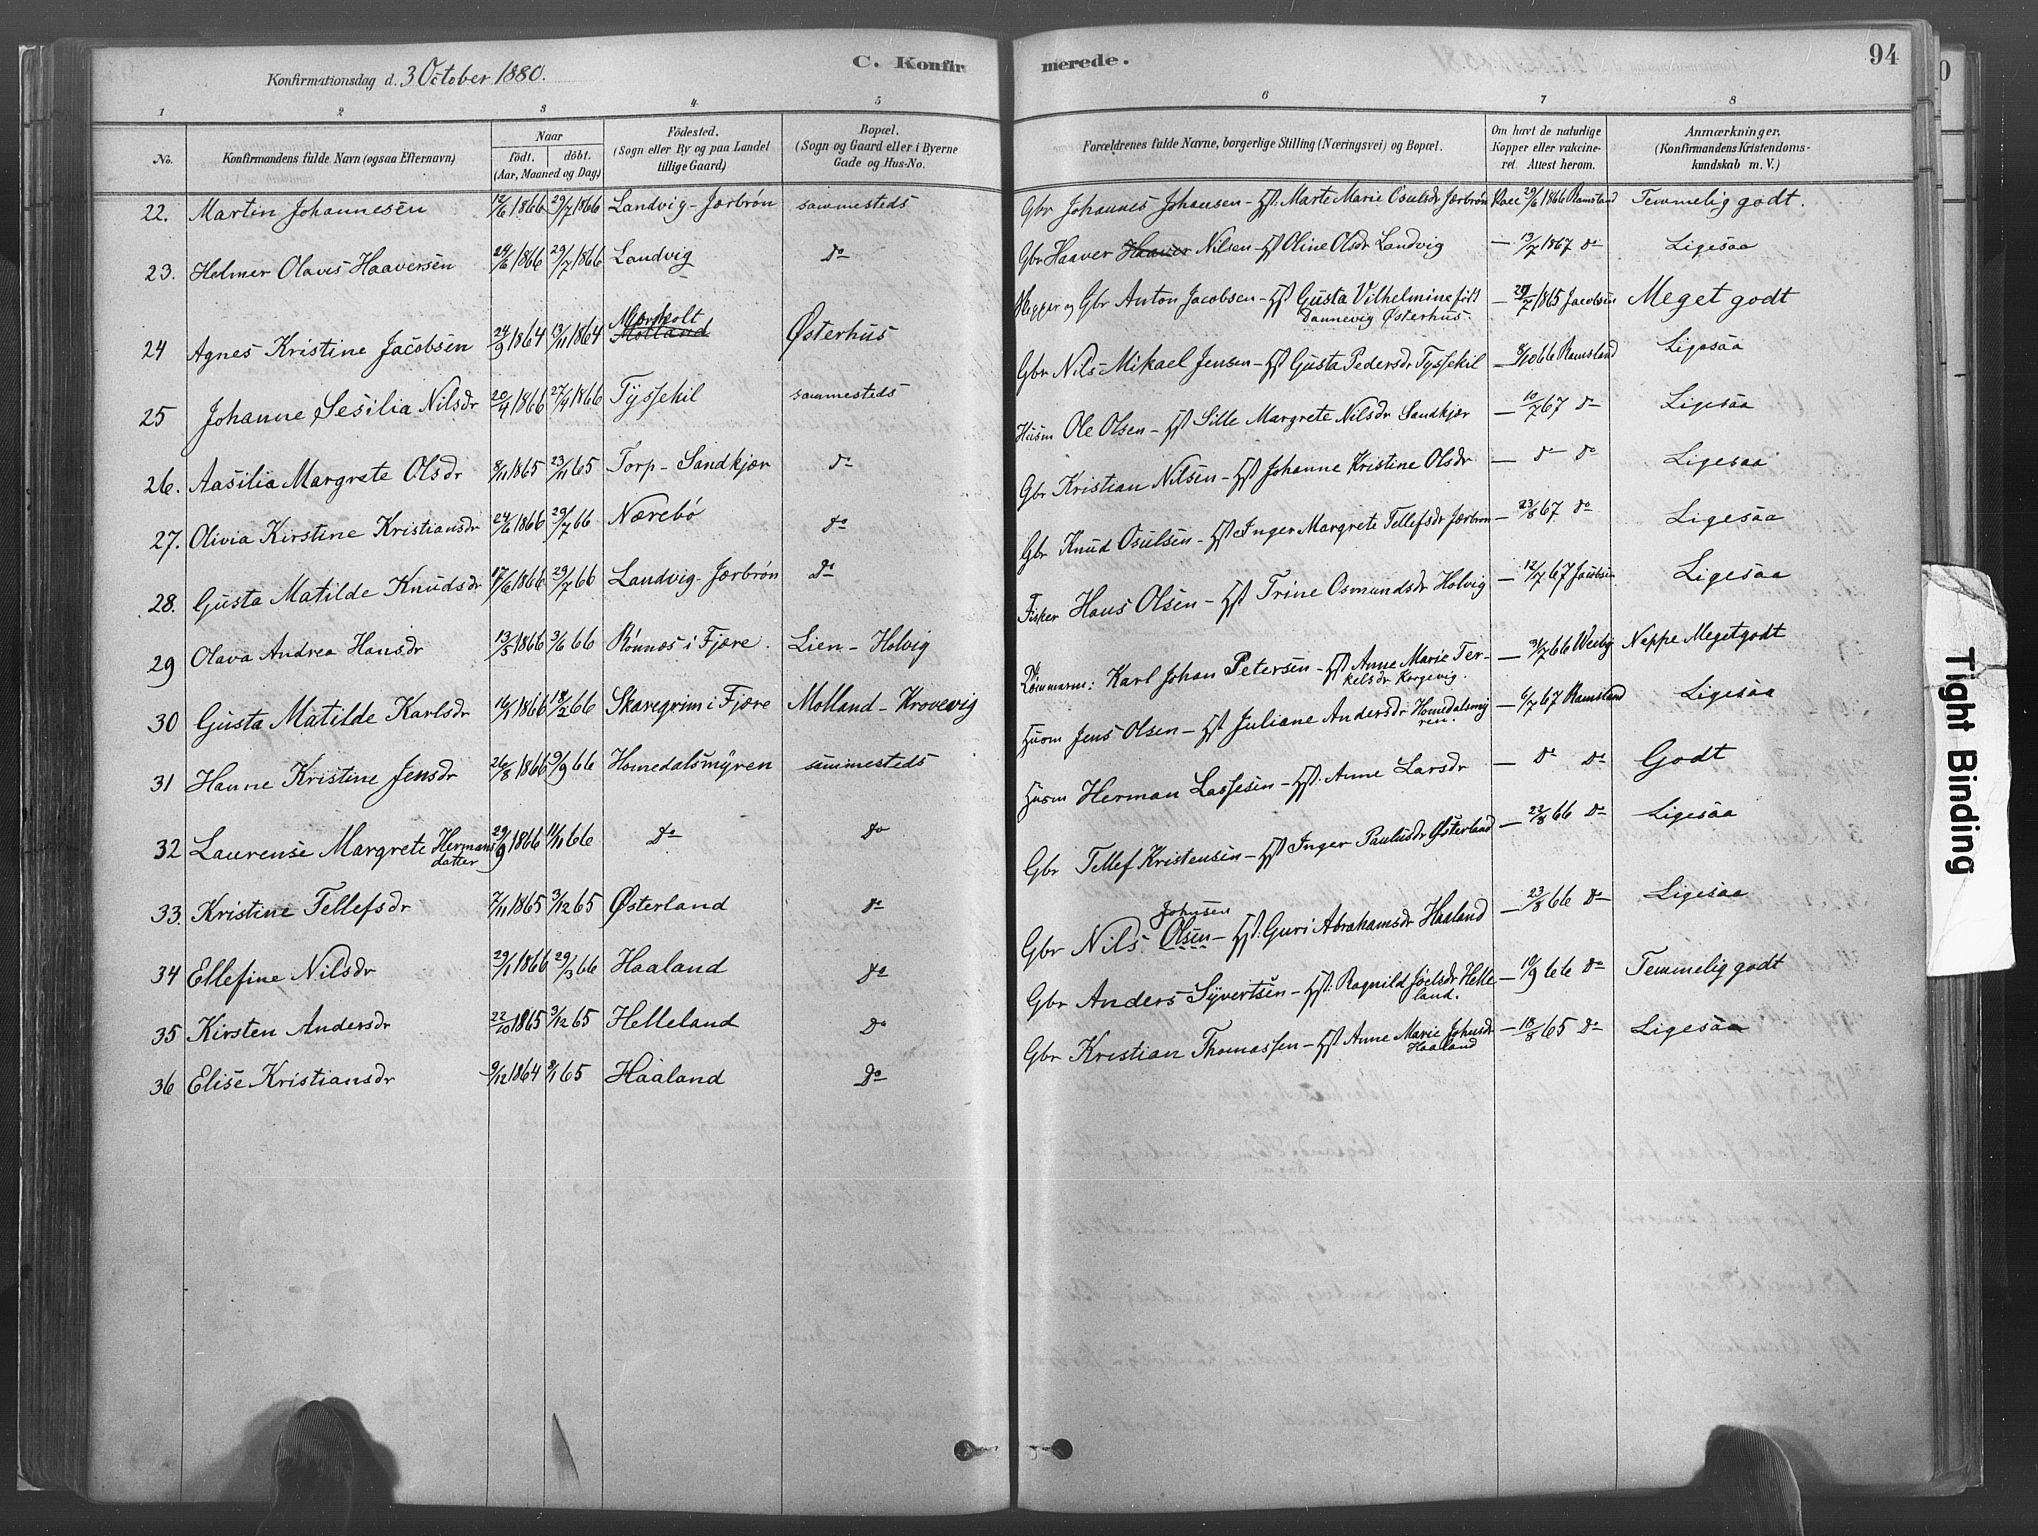 Konfirmationsdag d. 3 October 1880.
C. Konfir
merede.
94
1 2 3 4 5 6 7 8
No.
Konfirmandens fulde Navn (ogsaa Efternavn)
Naar
födt. döbt.
(Aar, Maaned og Dag)
Födested.
(Sogn eller By og paa Landet
tillige Gaard)
Bopæl.
(Sogn og Gaard eller i Byerne
Gade og Hus-No.
Forældrenes fulde Navne, borgerlige Stilling (Næringsvei) og Bopæl.
Om havt de naturlige
Kopper eller vakcine-
ret. Attest herom.
Anmærkninger.
(Konfirmandens Kristendoms-
kundskab m. V.)
22. Martin Johannesen 12/6 1866 29/7 1866 Landvig-Jærbrøn sammesteds Gbr Johannes Johansen - Hst: Marte Marie Osulsdr Jærbrøn Vacc 29/6 1866 Ramsland Temmelig godt.
23. Helmer Olavis Haaversen 24/6 1866 29/7 1866 Landvig Do Gbr Haaver Haaver Nilsen - Hst Oline Olsdr Landvig - 13/7 1867 Do Ligesaa
24 Agnes Kristine Jacobsen 24/9 1864 13/11 1864 Mørholt Holland Østerhus Skipper og Gbr Anton Jacobsen - Hst Gusta Vilhelmine født Dannevig Østerhus. - 29/7 1865 Jacobsen Meget godt
25 Johanne Sesilia Nilsdr 20/4 1866 27/4 1866 Tyssekil sammesteds Gbr Nils Mikael Jensen - Hst Gusta Pedersdr Tyssekil - 8/10 66 Ramsland Ligesaa
26. Aasilia Margrete Olsdr 8/11 1865 23/11 65 Torp - Sandkjær Do Husm Ole Olsen - Hst Sille Margrete Nilsdr Sandkjær - 10/7 67 Do Ligesaa
27. Olivia Kirstine Kristiansdr 24/6 1866 29/7 66 Nærebø Do Gbr Kristian Nilsen - Hst Johanne Kristine Olsdr - Do Do Ligesaa
28. Gusta Matilde Knudsdr 17/6 1866 29/7 66 Landvig-Jærbrøn Do Gbr Knud Osulsen - Hst Inger Margrete Tellefsdr Jærbrøn - 23/8 67 Do Ligesaa
29 Olava Andrea Hansdr 13/5 1866 3/6 66 Rønnes i Fjære. Lien - Holvig Fisker Hans Olsen - Hst Trine Osmundsdr Holvig - 12/7 67 Jacobsen Ligesaa
30 Gusta Matilde Karlsdr 16/1 1866 18/2 66 Skaregrim i Fjære Molland - Krovevig Tømmerm: Karl Johan Petersen - Hst Anne Marie Ter-
kelsdr Korgevig. - 31/7 66 Weeby Neppe Meget godt
31 Hanne Kristine Jensdr 26/8 1866 9/9 66 Homedalsmyren sammesteds Husm Jens Olsen - Hst Juliane Andersdr Homedalsmy
ren. - 6/7 67 Ramsland Ligesaa
32 Laurense Margrete Hermans
datter 29/9 1866 11/11 66 Do Do Husm Herman Lassesen - Hst: Anne Larsdr - Do Do Godt
33. Kristine Tellefsdr 7/11 1865 3/12 65 Østerland Do Gbr Tellef Kristensen - Hst Inger Paulusdr Østerland - 22/8 66 Do Ligesaa
34 Ellefine Nilsdr 29/1 1866 29/3 66 Haaland Do Gbr Nils Johnsen Olsen - Hst: Guri Abrahamsdr Haaland - 23/8 66 Do Ligesaa
35 Kirsten Andersdr 22/10 1865 3/12 65 Helleland Do Gbr Anders Syvertsen - Hst: Ragnild Joelsdr Helle
land. - 10/9 66 Do Temmelig godt
36 Elise Kristiansdr 9/12 1864 8/1 65 Haaland Do Gbr Kristian Thomassen - Hst Anne Marie Johnsdr
Haaland - 18/8 65 Do Ligesaa
Tight Binding